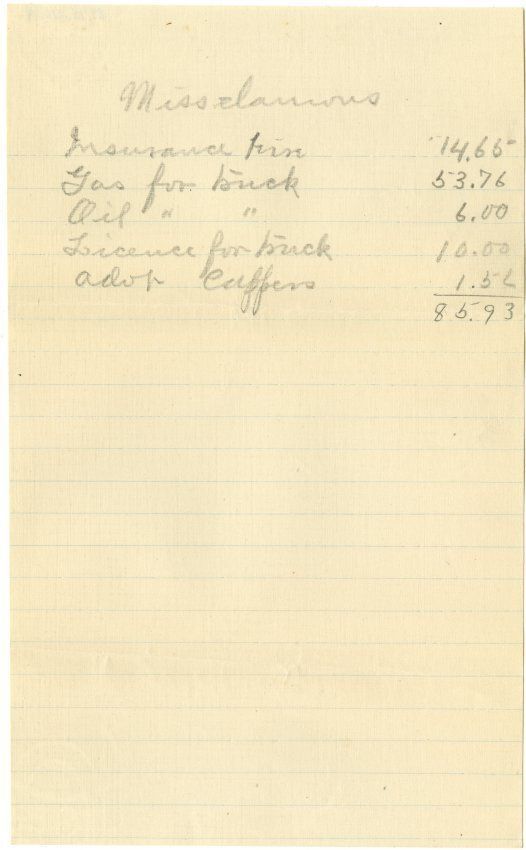 Misselanious
Insurance Fire 14.65
Gas for truck 53.76
Oil " " 6.00
Licence for truck 10.00
1.52
85.93